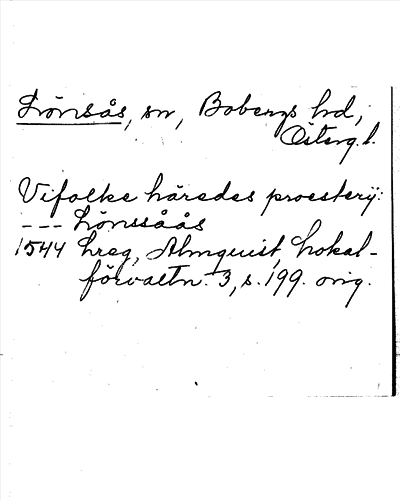 Lönsås, sn, Bobergs hd,
Österg. l.
Vifolke häredes proesterij:
--- Lönssåås
1544 hreg, Almquist, Lokal-
förvaltn. 3, s. 199. orig.